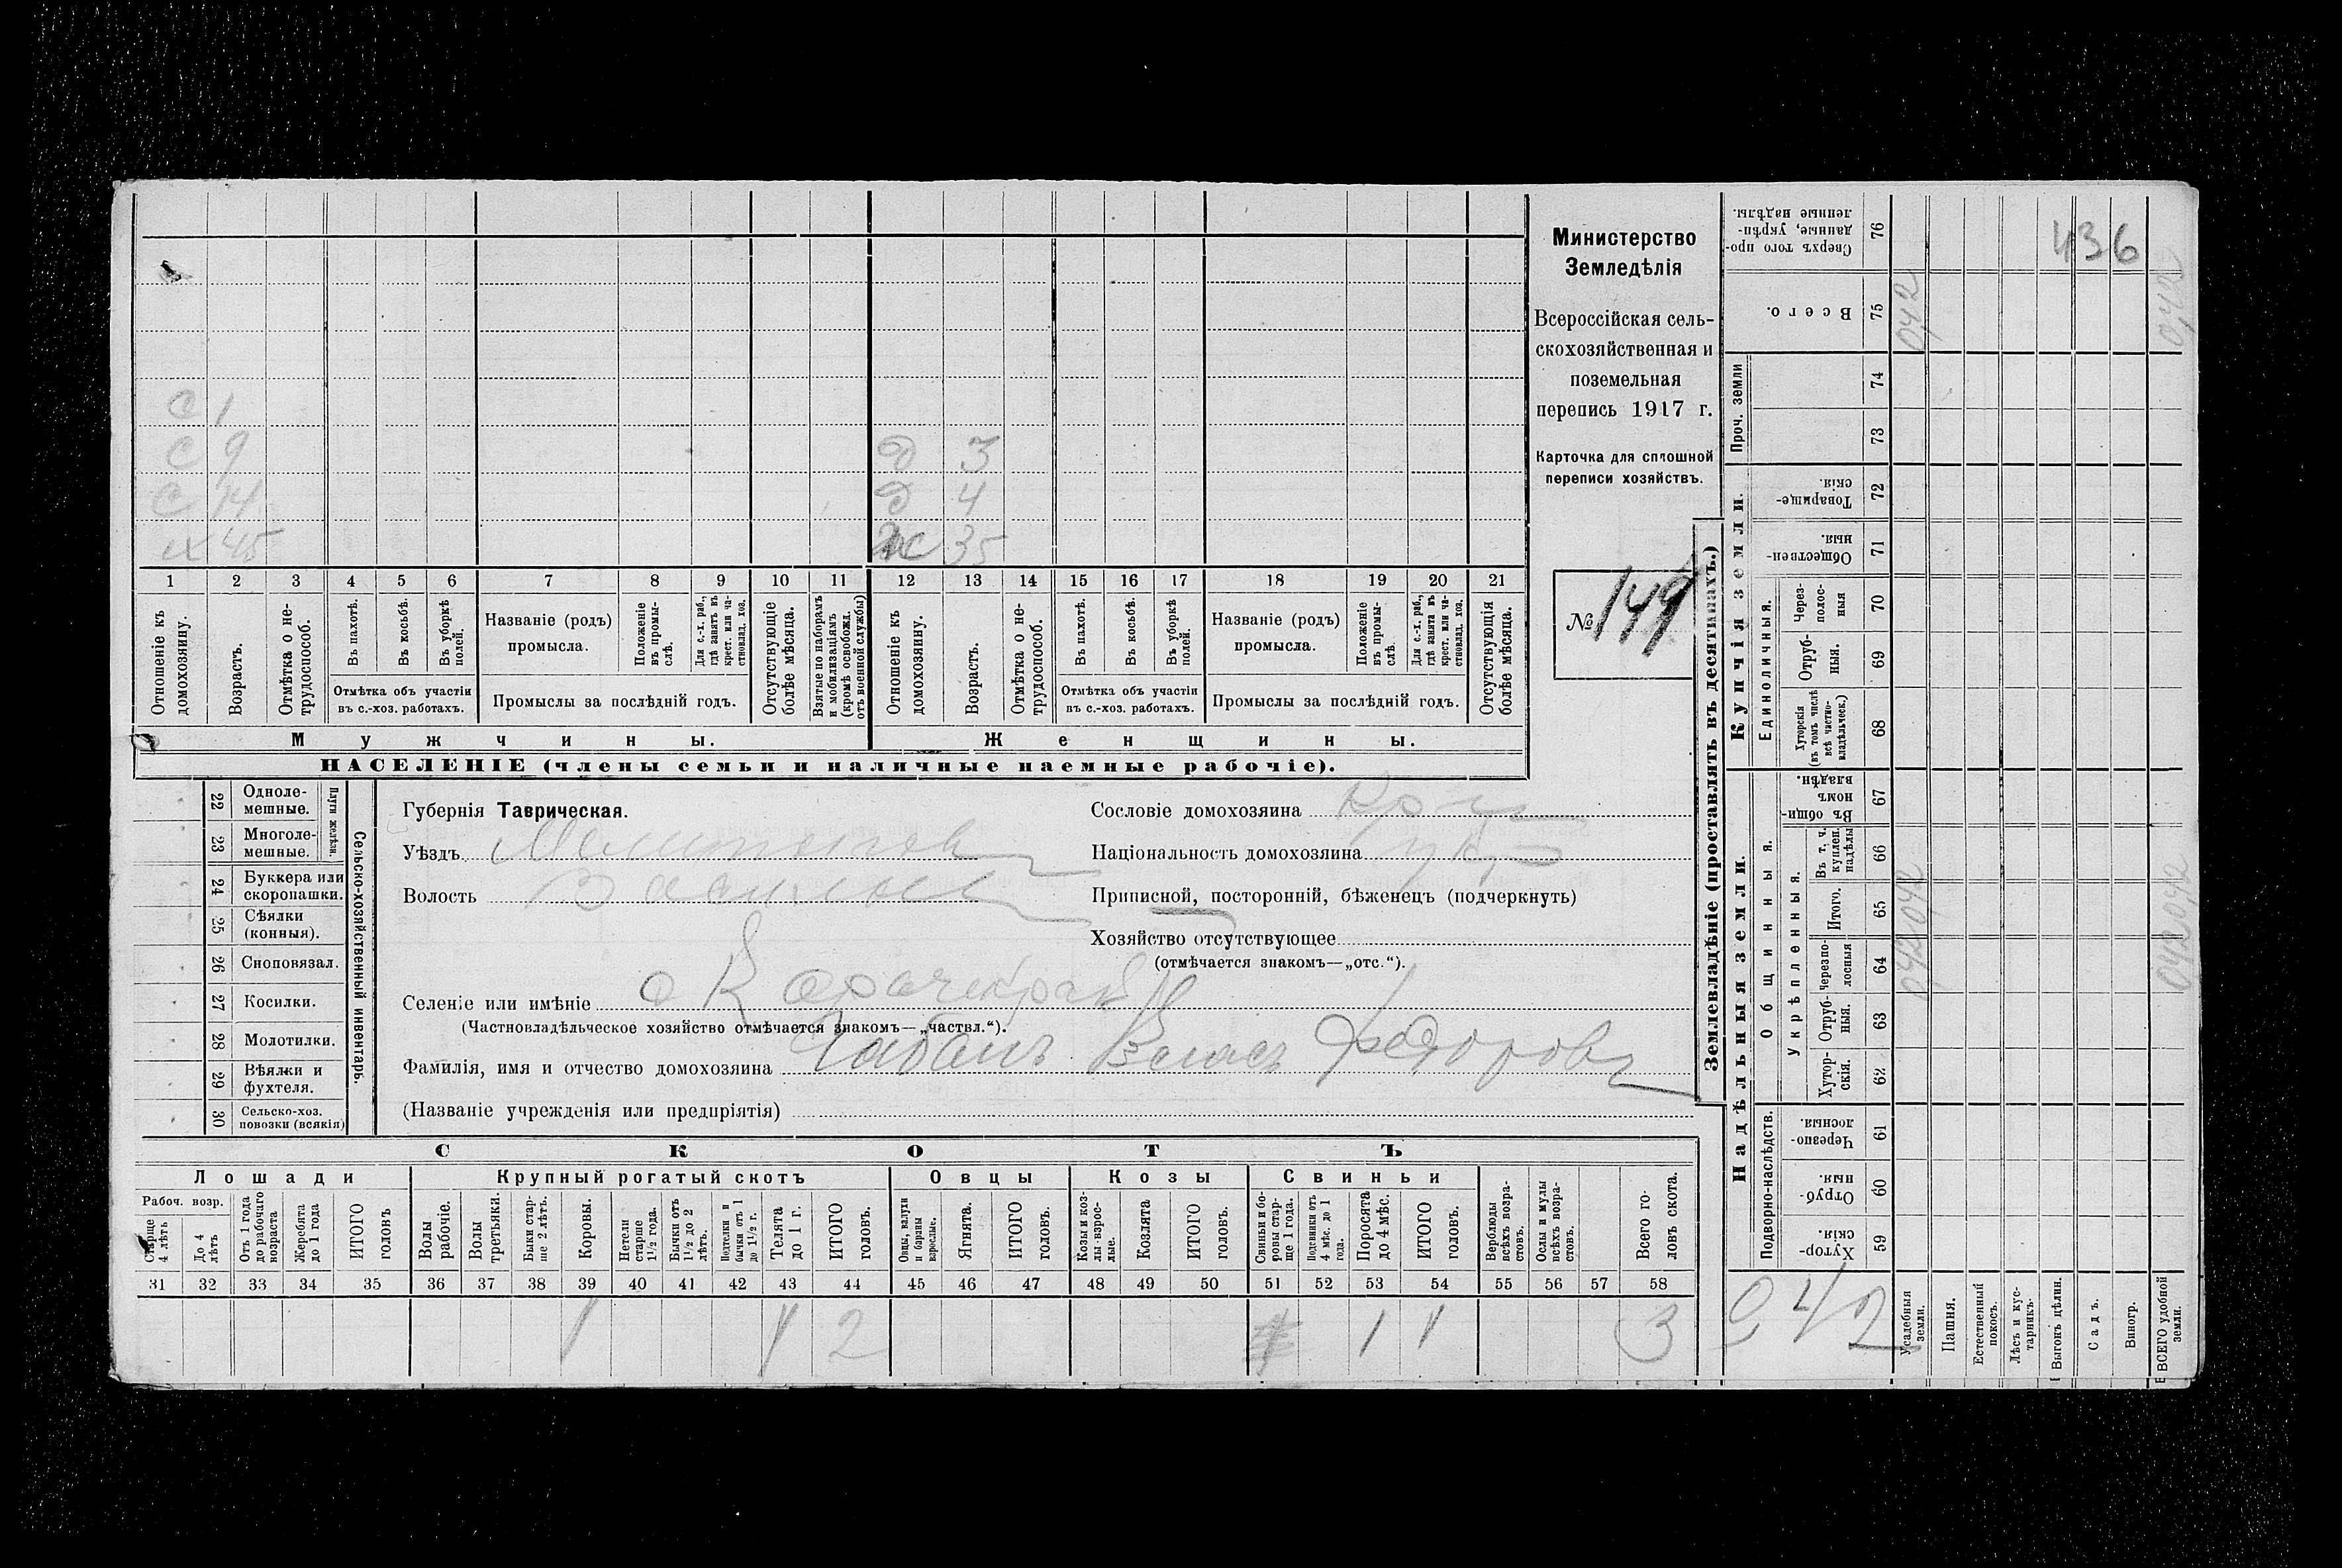 С 1
С 9 Д 3
С 14 Д 4
х 45 Ж 35
1 2 3 4 5 6 7 8 9 10 11 12 13 14 15 16 17 18 19 20 21
Отношеніе къ домохозяину.
Возрастъ.
Отмѣтка о нетрудоспособ.
Въ пахотѣ.
Въ косьбѣ.
Въ уборкѣ полей.
Отмѣтка объ участіи
въ с.-хоз. работахъ.
Названіе (родъ)
промысла.
Положеніе въ промыслѣ.
Для с.-х. раб., гдѣ занятъ въ крест. или частновлад. хоз.
Промыслы за послѣдній годъ.
Отсутствующіе болѣе мѣсяца.
Взятые по наборамъ и мобилизаціямъ (кромѣ освобожд. отъ военной службы)
Отношеніе къ домохозяину.
Возрастъ.
Отмѣтка о нетрудоспособ.
Въ пахотѣ.
Въ косьбѣ.
Въ уборкѣ полей.
Отмѣтка объ участіи
въ с.-хоз. работахъ.
Названіе (родъ)
промысла.
Положеніе въ промыслѣ.
Для с.-х. раб., гдѣ занята въ крест. или частновлад. хоз.
Промыслы за послѣдній годъ.
Отсутствующія болѣе мѣсяца.
Мужчины. Женщины.
НАСЕЛЕНІЕ (члены семьи и наличные наемные рабочіе).
Министерство
Земледѣлія
Всероссійская сель-
скохозяйственная и
поземельная
перепись 1917 г.
Карточка для сплошной
переписи хозяйствъ.
№ 149
Сельско-хозяйственный инвентарь.
Плуги желѣзн.
22 Одноле-
мешные.
23 Многоле-
мешные.
24 Буккера или
скоропашки.
25 Сѣялки
(конныя).
26 Сноповязал.
27 Косилки.
28 Молотилки.
29 Вѣялки и
фухтеля.
30 Сельско-хоз.
повозки (всякія)
Губернія Таврическая.
Уѣздъ
Волость
Селеніе или имѣніе
(Частновладѣльческое хозяйство отмѣчается знакомъ—„частвл.“).
Фамилія, имя и отчество домохозяина Чабанъ Власъ Федоровъ
(Названіе учрежденія или предпріятія)
Сословіе домохозяина
Національность домохозяина
Приписной, посторонній, бѣженецъ (подчеркнуть)
Хозяйство отсутствующее
(отмѣчается знакомъ—„отс.“).
СКОТЪ
Лошади Крупный рогатый скотъ Овцы Козы Свиньи
Рабоч. возр.
Старше 4 лѣтъ
До 4 лѣтъ
Отъ 1 года до рабочаго возраста
Жеребята до 1 года
ИТОГО головъ
Волы рабочіе.
Волы третьяки.
Быки старше 2 лѣтъ.
Коровы.
Нетели старше 1½ года.
Бычки отъ 1½ до 2 лѣтъ.
Подтелки и бычки отъ 1 до 1½ г.
Телята до 1 г.
ИТОГО головъ.
Овцы, валухи и бараны взрослые.
Ягнята.
ИТОГО головъ.
Козы и козлы взрослые.
Козлята
ИТОГО головъ.
Свиньи и боровы старше 1 года.
Подсвинки отъ 4 мѣс. до 1 года.
Поросята до 4 мѣс.
ИТОГО головъ.
Верблюды всѣхъ возрастовъ.
Ослы и мулы всѣхъ возрастовъ.
Всего головъ скота.
31 32 33 34 35 36 37 38 39 40 41 42 43 44 45 46 47 48 49 50 51 52 53 54 55 56 57 58
1 1 2 1 1 3
Землевладѣніе (проставлять въ десятинахъ.)
Надѣльныя земли. Купчія земли. Проч. земли
Подворно-наслѣдств.
Общинныя.
Укрѣпленныя.
Единоличныя.
Сверхъ того проданные, укрѣпленные надѣлы. 76
Всего. 75
74
73
Товарищескія. 72
Общественныя. 71
Черезполосныя 70
Отрубныя. 69
Хуторскія (въ томъ числѣ всѣ частновладѣльческ.) 68
Въ общинномъ владѣн. 67
Въ т. ч. куплен. надѣлы 66
Итого. 65
черезполосныя 64
Отрубныя. 63
Хуторскія. 62
Черезполосныя. 61
Отрубныя. 60
Хуторскія. 59
436
0,42
0,42
042 042
042 042
042
Усадебныя земли.
Пашня.
Естественный покосъ.
Лѣсъ и кустарникъ.
Выгонъ цѣлин.
Садъ.
Виногр.
ВСЕГО удобной земли.